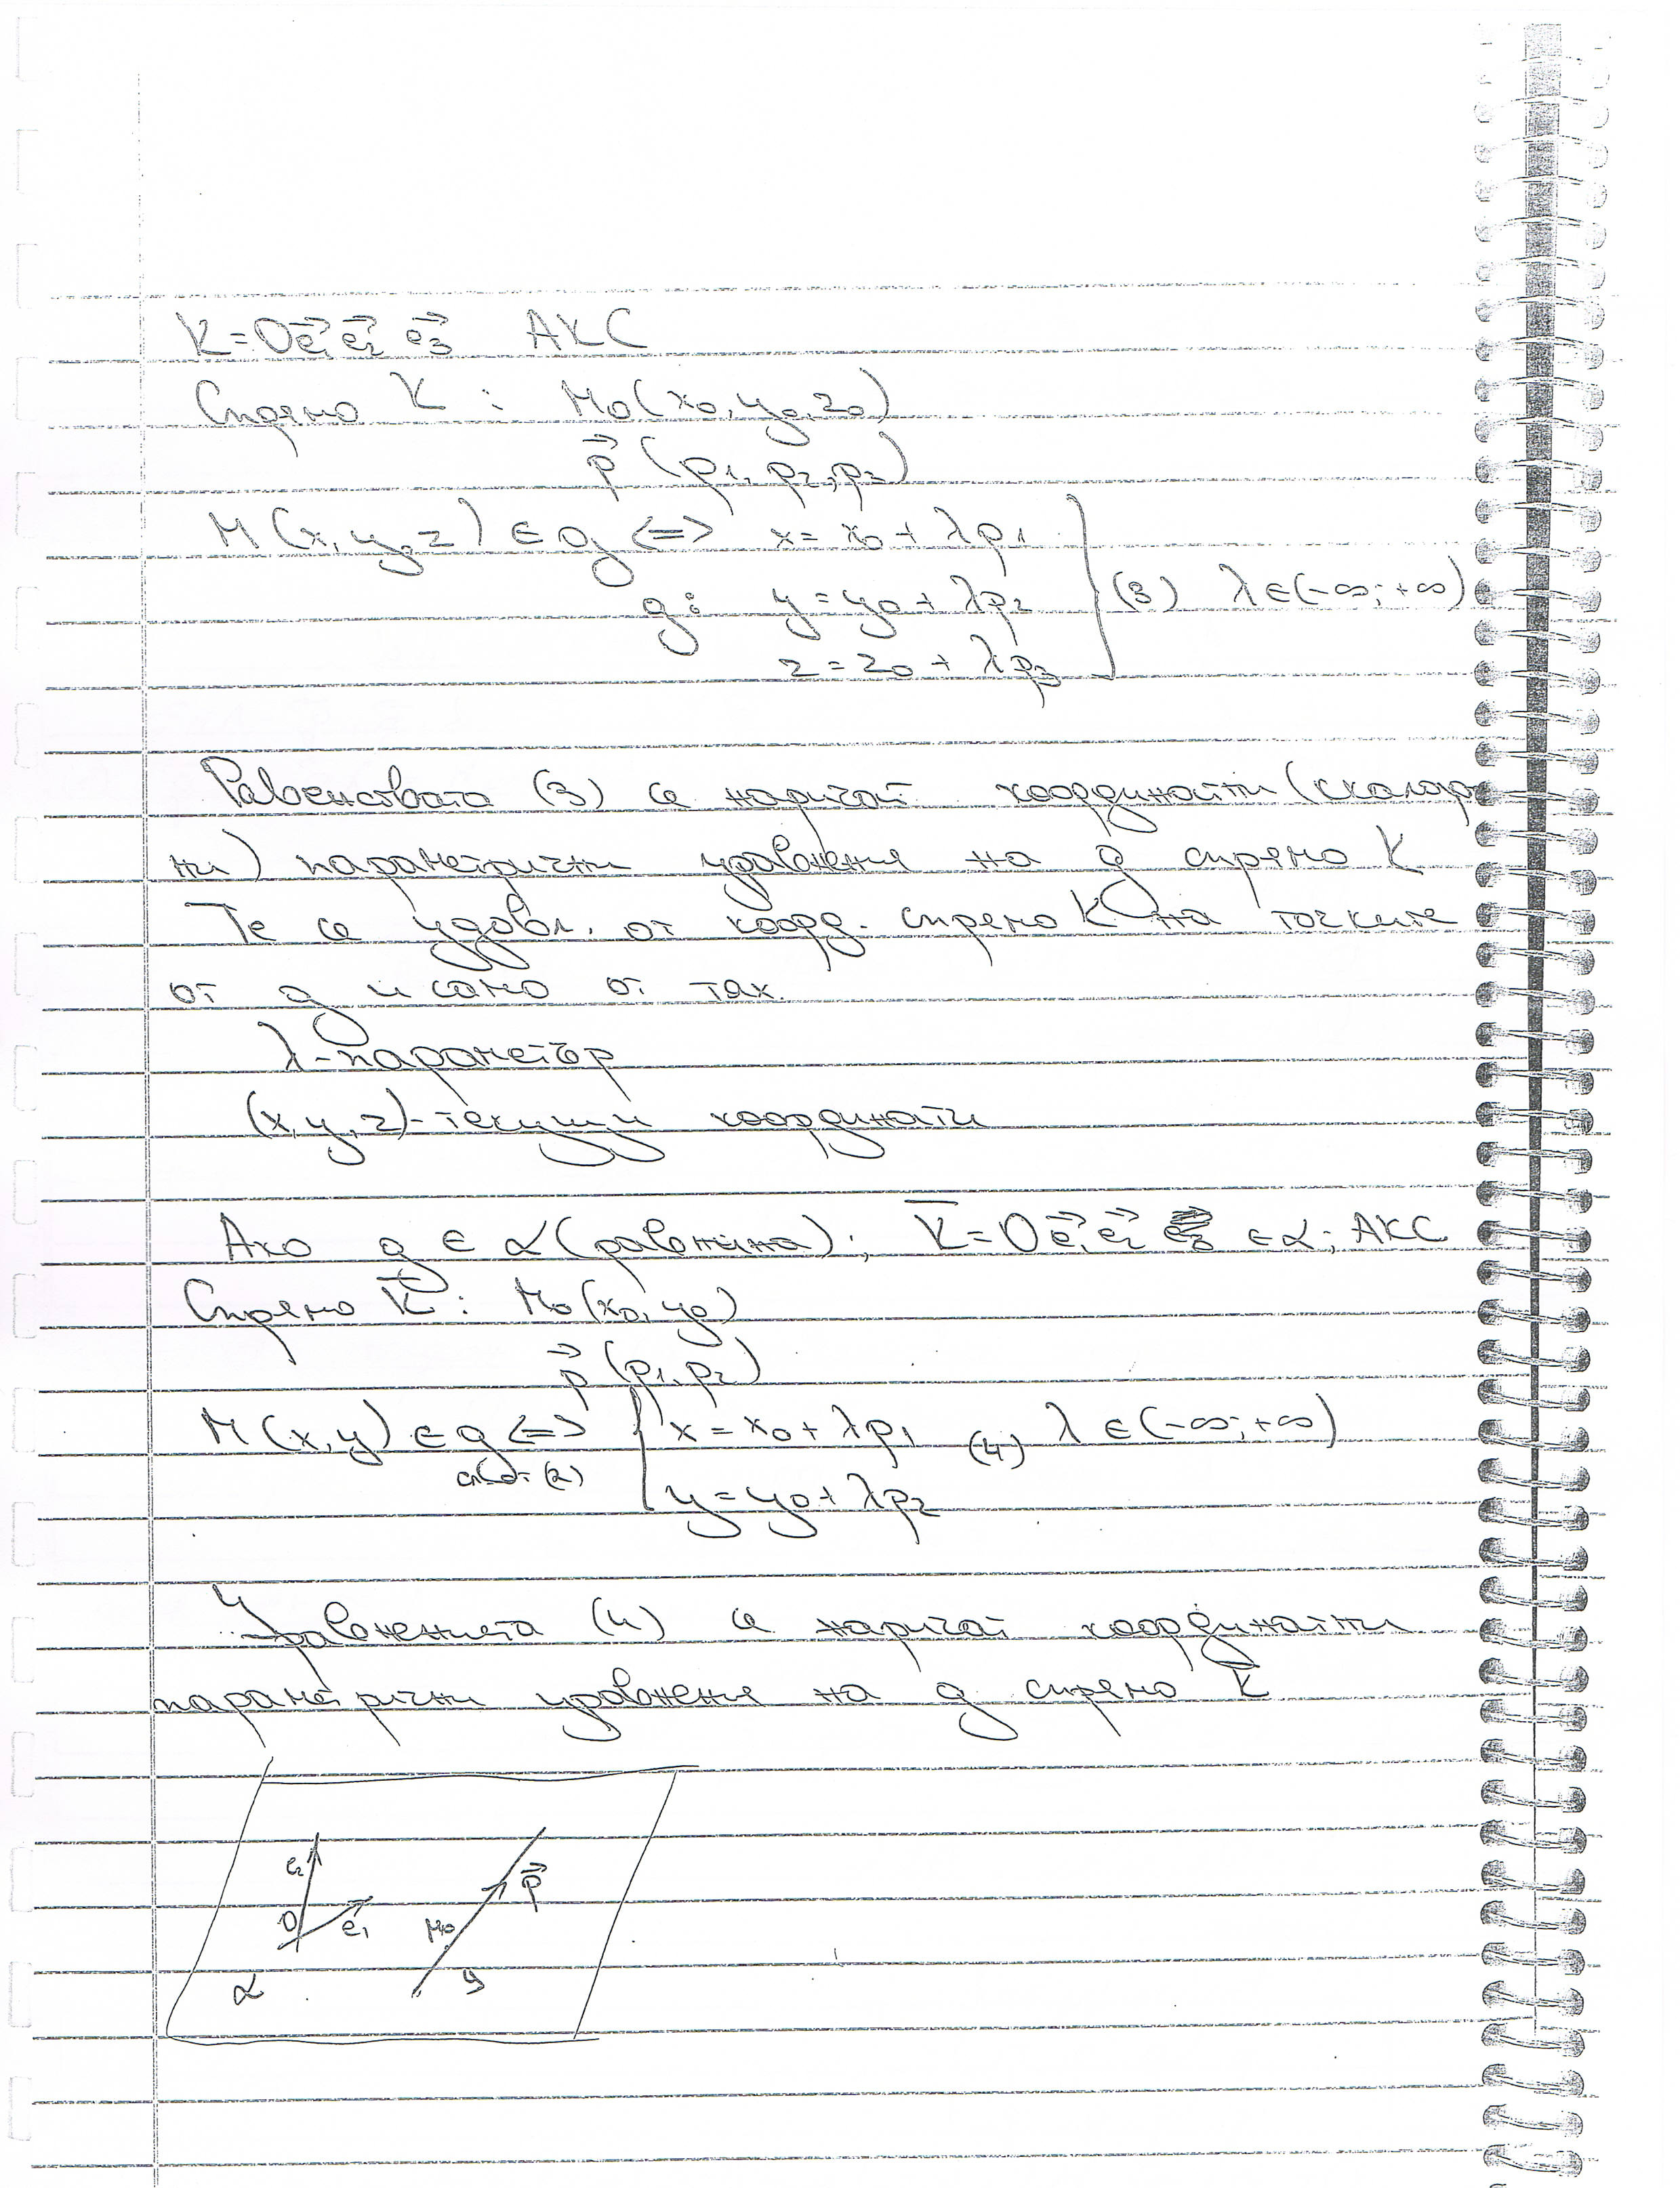 K=Oe₁⃗e₂⃗ e₃⃗ АКС
Спрямо K : M₀(x₀, y₀, z₀)
p⃗ (p₁, p₂, p₃)
M(x, y, z) ∈ g <=> x = x₀ + λp₁
g: y = y₀ + λp₂ } (3) λ∈(-∞; +∞)
z = z₀ + λp₃
Равенствата (3) се наричат координатни (скалар
ни) параметрични уравнения на g спрямо K
Те се удовл. от коорд. спрямо K на точките
от g и само от тях.
λ-параметър
(x, y, z)-текущи координати
Ако g ∈ α (равнина); K̅=Oe₁⃗e₂⃗ ∈ α; АКС
Спрямо K̅ : M₀(x₀, y₀)
p⃗ (p₁, p₂)
M(x, y) ∈ g <=> { x = x₀ + λp₁ (4) λ ∈(-∞; +∞)
(2)
y = y₀ + λp₂
Уравненията (4) се наричат координатни
параметрични уравнения на g спрямо K̅
e₂
p⃗
O e₁ M₀
α g